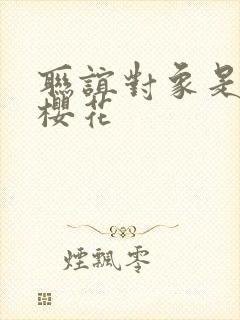 聯誼對象是
櫻花
煙飄零